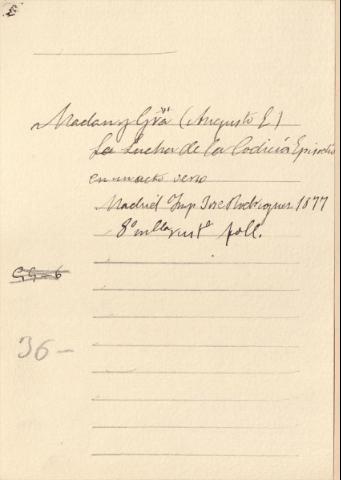 Madan y Gª (Augusto E)
La Lucha de la Codicia Episodio
en un acto verso
Madrid Imp Jose Rodriguez 1877
8º foll.
36-